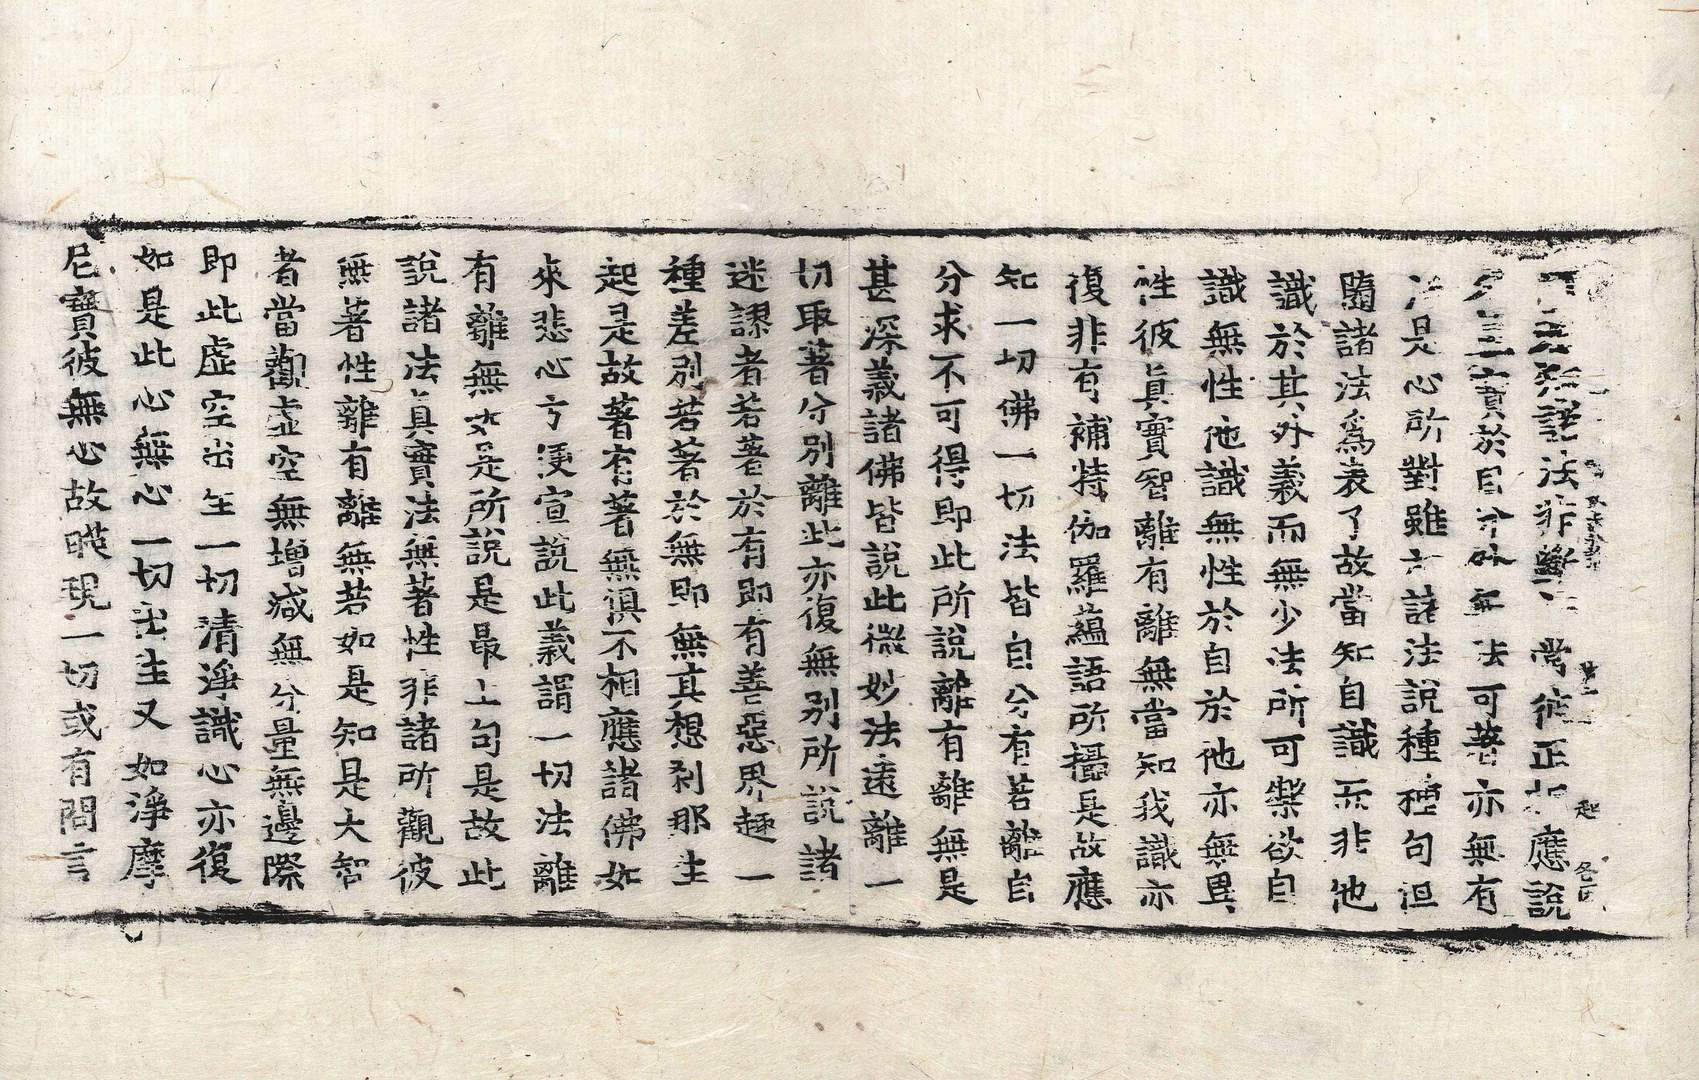 諸法非斷 常彼正 應說
實於自分外無法可著亦無有
是心所對雖 諸法說種種句但
隨諸法爲表了故當知自識而非他
識於其外義而無少法所可樂欲自
識無性他識無性於自於他亦無異
性彼眞實智離有離無當知我識亦
復非有補特伽羅蘊語所攝是故應
知一切佛一切法皆自分有若離自
分求不可得即此所說離有離無是
甚深義諸佛皆說此微妙法遠離一
切取著分別離此亦復無別所說諸
迷謬者若著於有即有善惡界趣一
種差別若著於無即無其想剎那生
起是故著有著無俱不相應諸佛如
來悲心方便宣說此義謂一切法離
有離無如是所說是最上句是故此
說諸法眞實法無著性非諸所觀彼
無著性離有離無若如是知是大智
者當觀虛空無增減無分量無邊際
即此虛空出生一切清淨識心亦復
如是此心無心一切出生又如淨摩
尼寶彼無心故暎現一切或有問言